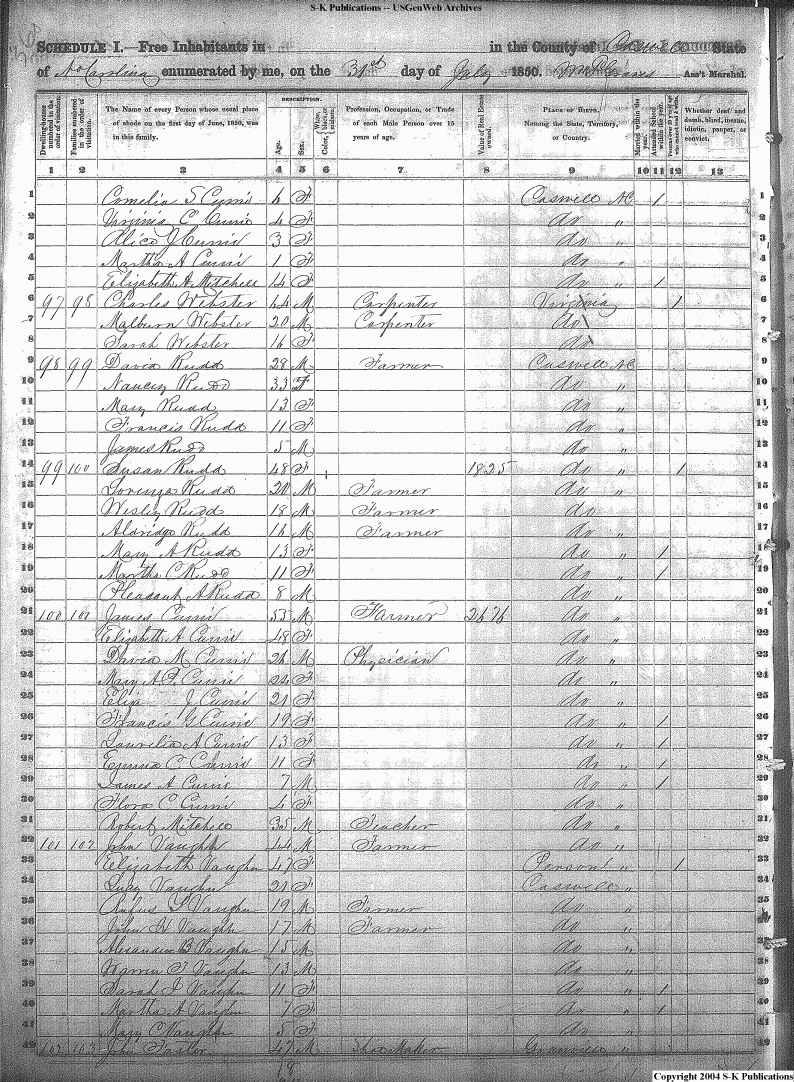 S-K Publications -- USGenWeb Archives
SCHEDULE I.—Free Inhabitants in in the County of Caswell State
of No Carolina enumerated by me, on the 31st day of July 1850. Wm P Graves Ass't Marshal.
Dwelling-houses numbered in the order of visitation.
Families numbered in the order of visitation.
The Name of every Person whose usual place of abode on the first day of June, 1850, was in this family.
DESCRIPTION.
Age.
Sex.
Color, White, black, or mulatto.
Profession, Occupation, or Trade of each Male Person over 15 years of age.
Value of Real Estate owned.
PLACE OF BIRTH. Naming the State, Territory, or Country.
Married within the year.
Attended School within the year.
Persons over 20 y'rs of age who cannot read & write.
Whether deaf and dumb, blind, insane, idiotic, pauper, or convict.
1 2 3 4 5 6 7 8 9 10 11 12 13
1 Cornelia S Currie 6 F Caswell NC / 1
2 Virginia C Currie 4 F do " 2
3 Alice J Currie 3 F do " 3
4 Martha A Currie 1 F do " 4
5 Elizabeth A Mitchell 14 F do " / 5
6 97 98 Charles Webster 44 M Carpenter Virginia / 6
7 Malburn Webster 20 M Carpenter do 7
8 Sarah Webster 16 F do 8
9 98 99 David Rudd 28 M Farmer Caswell NC 9
10 Nancy Rudd 33 F do " 10
11 Mary Rudd 13 F do " 11
12 Francis Rudd 11 F do " 12
13 James Rudd 5 M do " 13
14 99 100 Susan Rudd 48 F 1825 do " / 14
15 Lorenza Rudd 20 M Farmer do " 15
16 Wesley Rudd 18 M Farmer do " 16
17 Aldridge Rudd 16 M Farmer do " 17
18 Mary A Rudd 13 F do " / 18
19 Martha C Rudd 11 F do " / 19
20 Pleasant A Rudd 8 M do " 20
21 100 101 James Currie 55 M Farmer 2676 do " 21
22 Elizabeth A Currie 48 F do " 22
23 David M Currie 26 M Physician do " 23
24 Mary A Currie 24 F do " 24
25 Eliza J Currie 21 F do " 25
26 Francis G Currie 19 F do " / 26
27 Laurelia A Currie 13 F do " / 27
28 Emma C Currie 11 F do " / 28
29 James A Currie 7 M do " / 29
30 Flora C Currie 4 F do " 30
31 Robert Mitchell 35 M Teacher do " 31
32 101 102 John Vaughn 44 M Farmer do " 32
33 Elizabeth Vaughn 47 F Person " / 33
34 Lucy Vaughn 21 F Caswell " 34
35 Rufus Vaughn 19 M Farmer do " 35
36 John H Vaughn 17 M Farmer do " 36
37 Alexander B Vaughn 15 M do " 37
38 Warren Vaughn 13 M do " 38
39 Sarah J Vaughn 11 F do " / 39
40 Martha A Vaughn 7 F do " / 40
41 Mary C Vaughn 5 F do " 41
42 102 103 John Foster 47 M Shoe Maker Granville " 42
18
Copyright 2004 S-K Publications